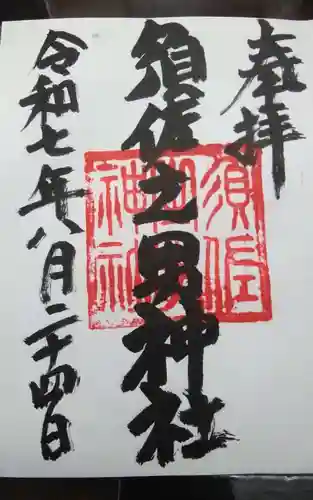 奉拝
須佐之男神社
令和七年八月二十四日
須佐
之男
神社